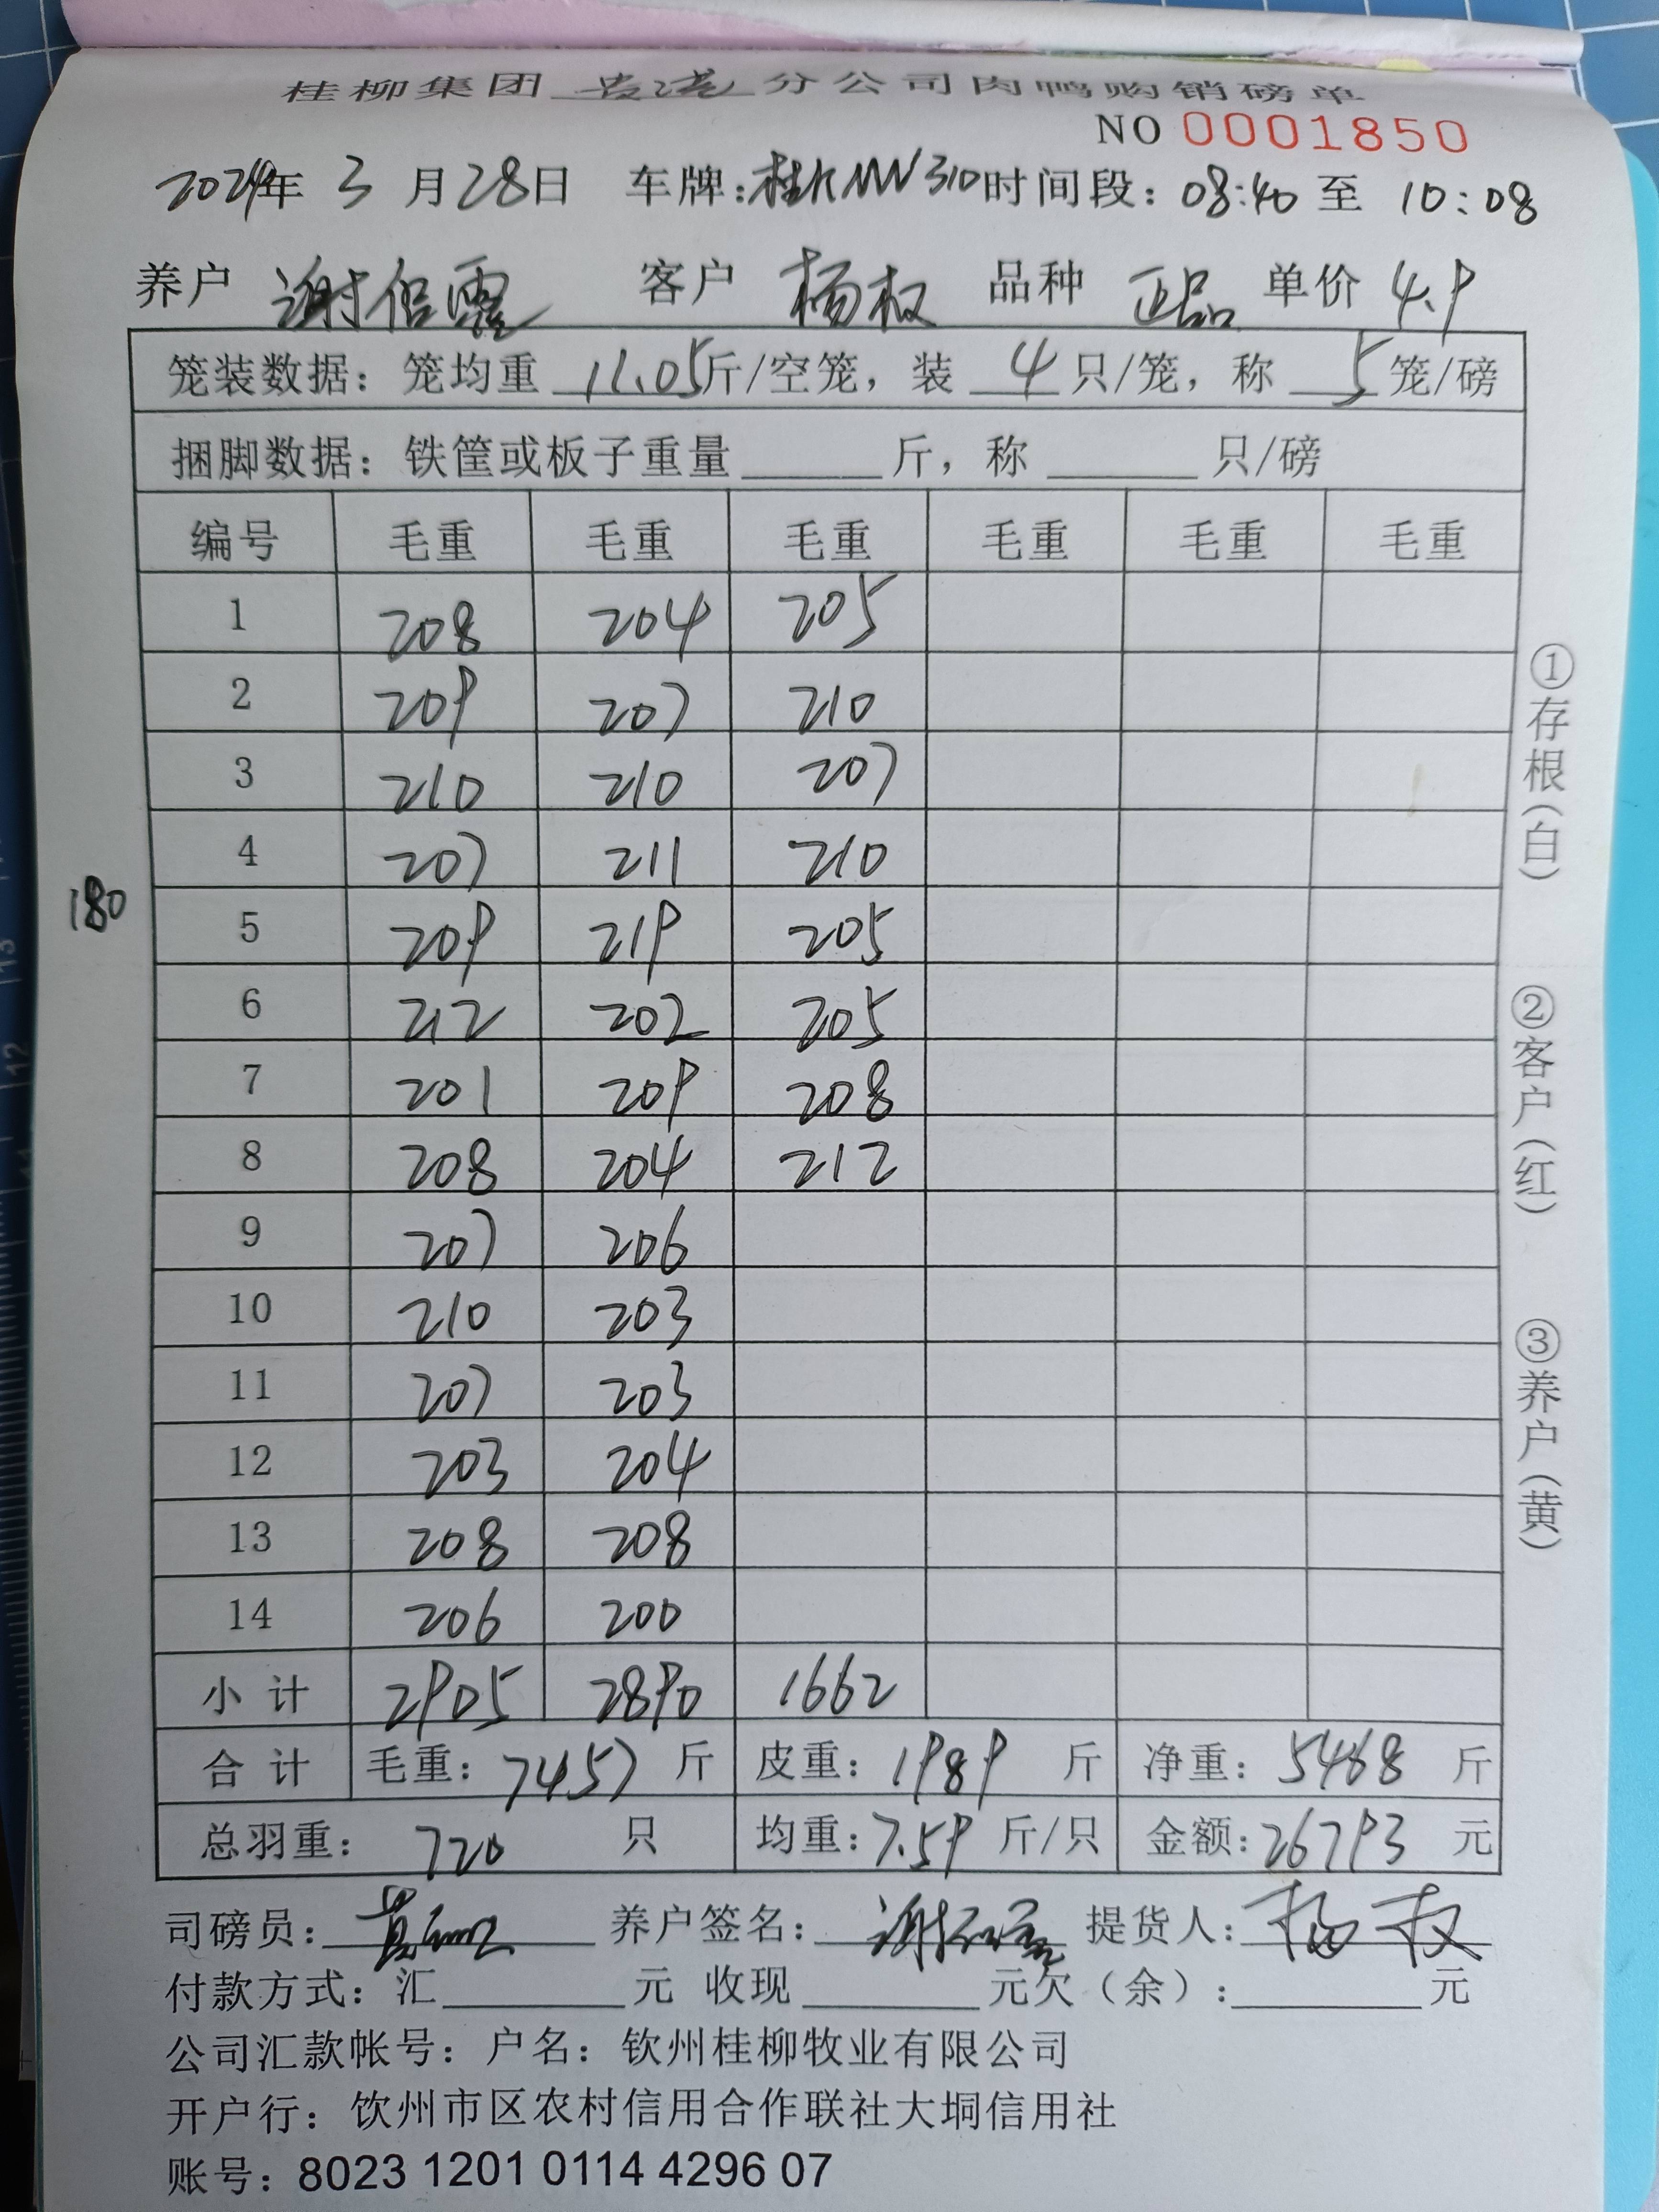 桂柳集团 贵港 分公司肉鸭购销磅单
NO 0001850
2024年 3 月 28 日 车牌: 310 时间段: 08:40 至 10:08
养户 谢 客户 杨权 品种 正品 单价 4.9
笼装数据: 笼均重 11.05 斤/空笼, 装 4 只/笼, 称 5 笼/磅
捆脚数据: 铁筐或板子重量 斤, 称 只/磅
编号 毛重 毛重 毛重 毛重 毛重 毛重
1 208 204 205
2 209 207 210
3 210 210 207
4 207 211 210
5 209 219 205
6 212 202 205
7 201 209 208
8 208 204 212
9 207 206
10 210 203
11 207 203
12 203 204
13 208 208
14 206 200
小 计 2905 2890 1662
合 计 毛重: 7457 斤 皮重: 1989 斤 净重: 5468 斤
总羽重: 720 只 均重: 7.59 斤/只 金额: 26793 元
司磅员: 养户签名: 谢 提货人: 杨权
付款方式: 汇 元 收现 元欠(余): 元
公司汇款帐号: 户名: 钦州桂柳牧业有限公司
开户行: 钦州市区农村信用合作联社大垌信用社
账号: 8023 1201 0114 4296 07
180
①存根(白)
②客户(红)
③养户(黄)